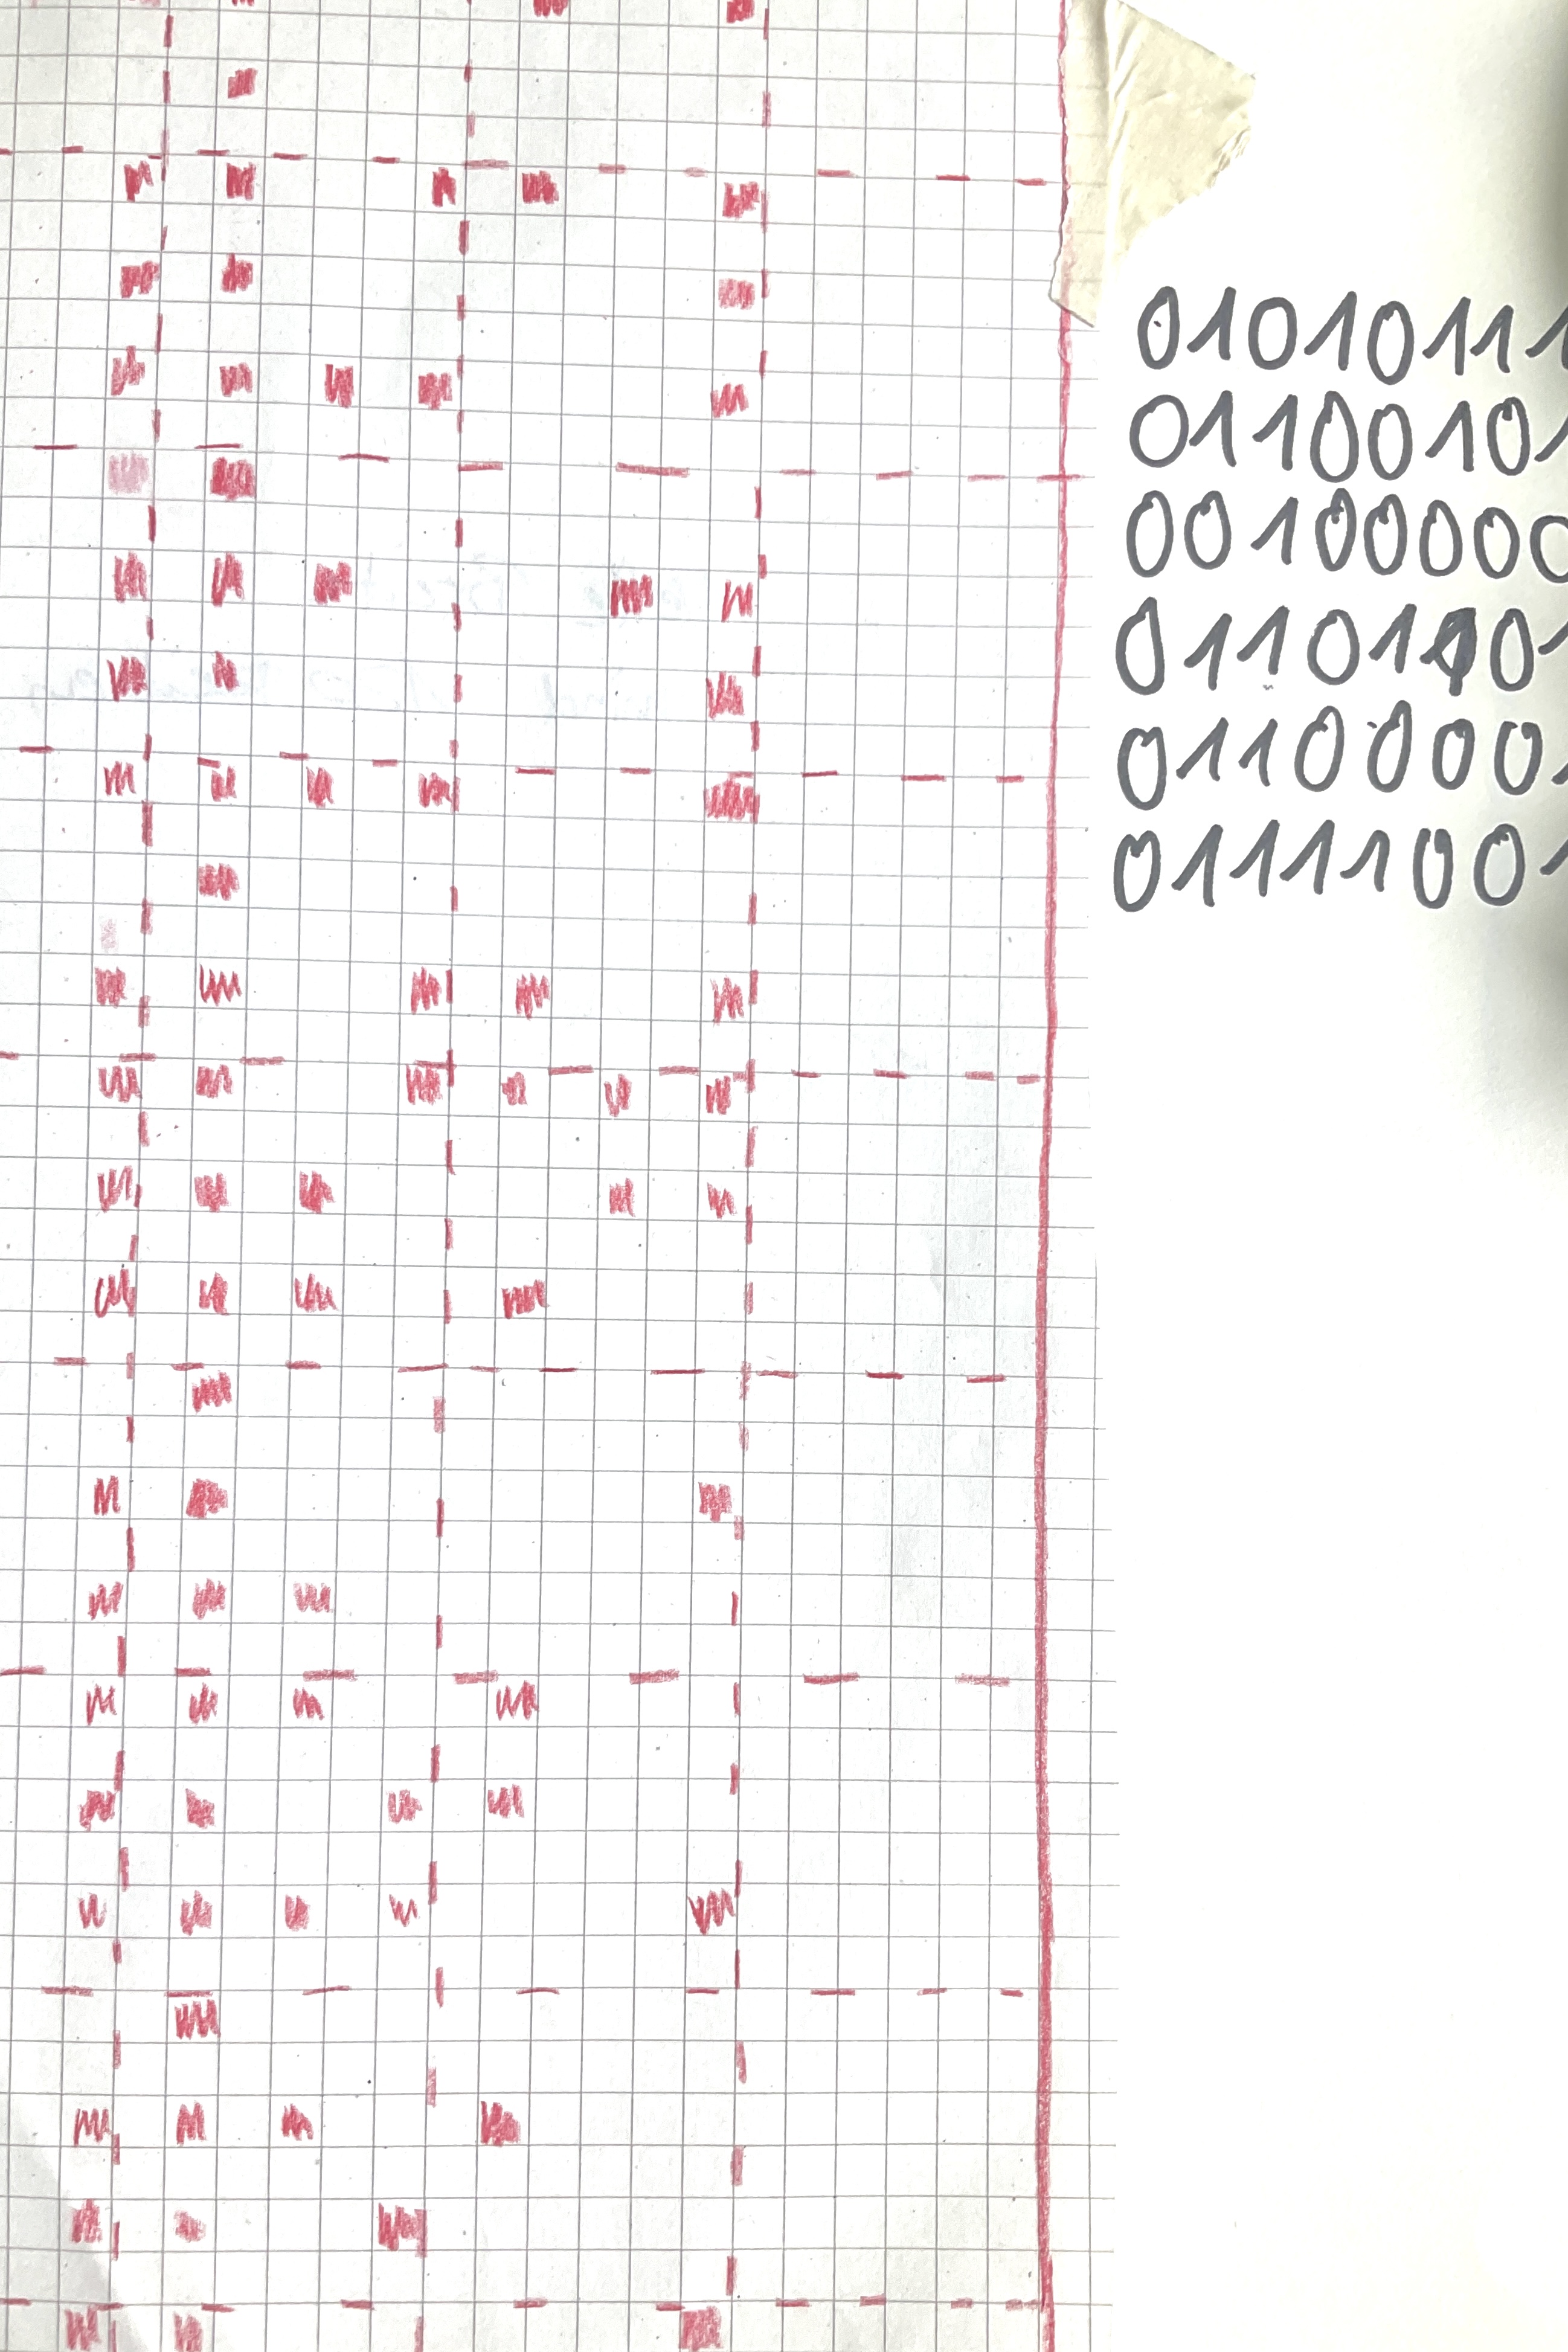 01010111
01100101
00100000
01101001
01100001
01111001